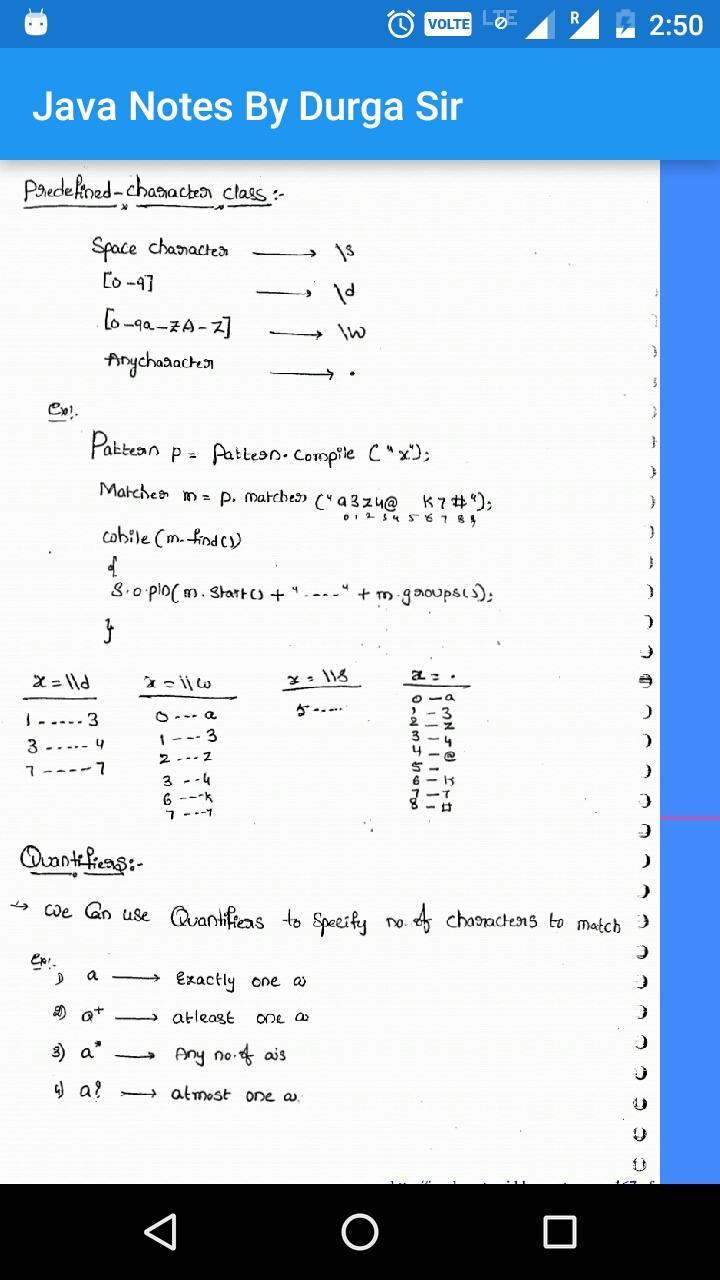 VOLTE LTE R 2:50
Java Notes By Durga Sir
Predefined-character class:-
Space character → \s
[0-9] → \d
[0-9a-zA-Z] → \w
Any character → .
Ex:.
Pattern p = Pattern.compile ("x");
Matcher m = p. matcher ("a3z4@ k7#");
0 1 2 3 4 5 6 7 8
while (m.find())
{
S.o.pln(m.start() + "----" + m.group());
}
x = \\d x = \\w x = \\s x = .
1-----3 0---a 5---- 0-a
3-----4 1---3 1-3
7-----7 2---z 2-z
3--4 3-4
6---k 4-@
7---7 5-
6-k
7-7
8-#
Quantifiers:-
→ we can use Quantifiers to specify no. of characters to match
Ex:.
1) a → Exactly one a
2) a+ → atleast one a
3) a* → Any no. of a's
4) a? → atmost one a.